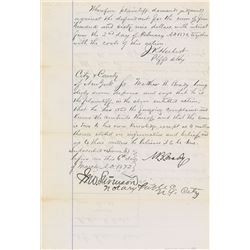 Wherefore plaintiff demands judgment
against the defendant for the sum of five
hundred and sixty one dollars with interest
from the 2nd day of February A.D. 1872 together
with the costs of this action
Plffs Atty
City & County
of New York Ss. Mathew B. Brady being
duly sworn deposes and says that he is
the plaintiff in the above entitled action
that he has read the foregoing complaint and
knows the contents thereof and that the same
is true to his own knowledge except as to matters
stated on information and belief and
as to those matters he believes it to be true
Subscribed & Sworn to
before me this 6th day of
March A.D. 1872
M B Brady
Notary Public
N.Y. City